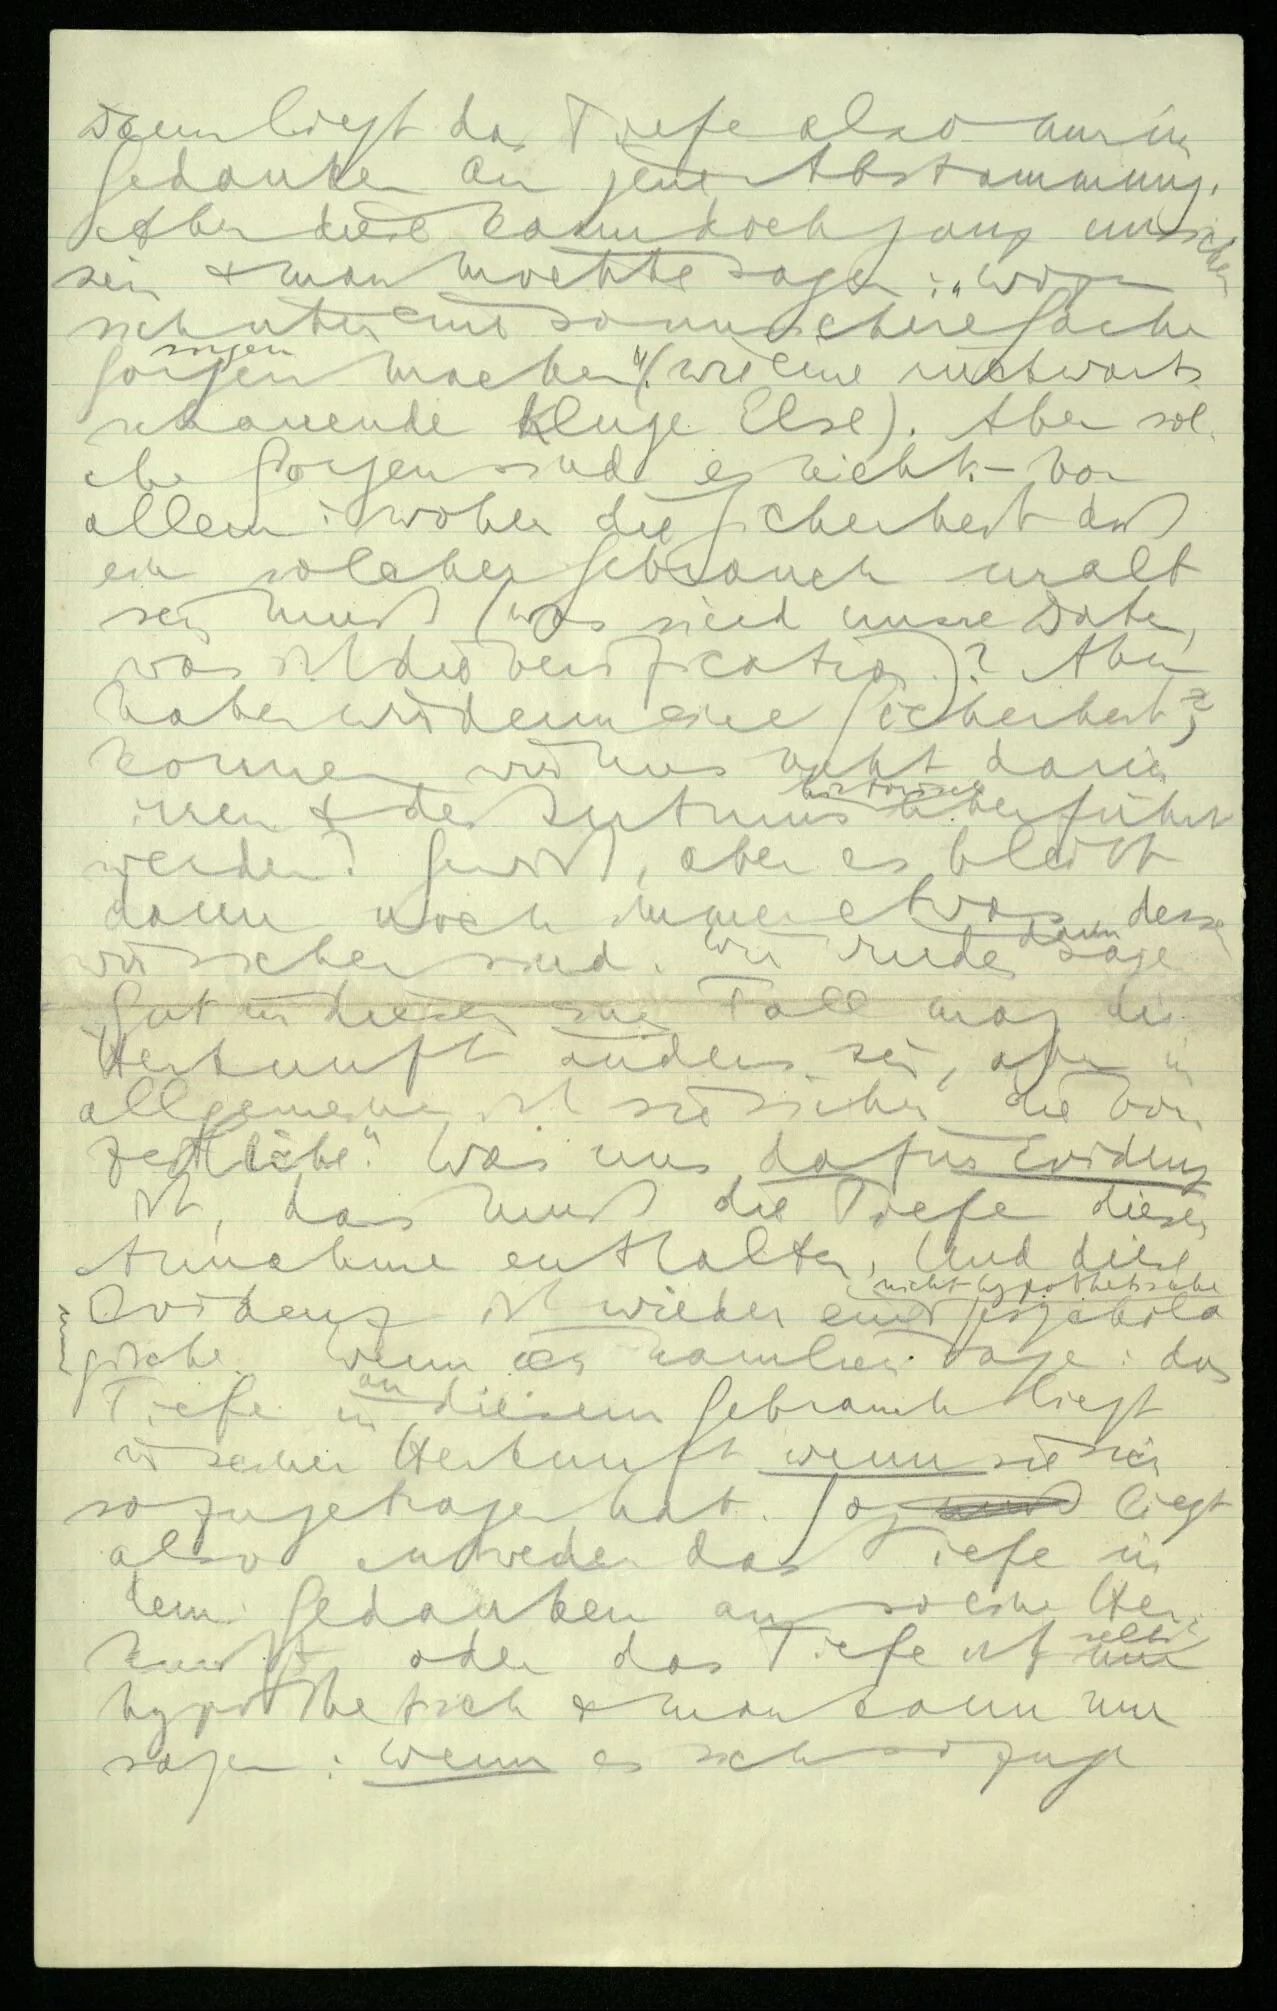 Dann liegt das Tiefe also nur im
Gedanken an jene Abstammung.
Aber diese kann doch ganz unsicher
sein & man möchte sagen: „Wozu
sich über eine so unsichere Sache
Sorgen machen“ (wie eine rückwärts
schauende Kluge Else). Aber sol-
che Sorgen sind es nicht. – Vor
allem: woher die Sicherheit daß
ein solcher Gebrauch uralt
sein muß (was sind unsre Daten,
was ist die Verification)? Aber
haben wir denn eine Sicherheit,
können wir uns nicht darin
irren & des Irrtums historisch überführt
werden? Gewiß, aber es bleibt
dann noch immer etwas, dessen
wir sicher sind. Wir würden dann sagen
„Gut in diesem einen Fall mag die
Herkunft anders sein, aber im
allgemeinen ist sie sicher die vor-
zeitliche.“ Was uns dafür Evidenz
ist, das muß die Tiefe dieser
Annahme enthalten. Und diese
Evidenz ist wieder eine nicht-hypothetische psycholo-
gische. Wenn ich nämlich sage: das
Tiefe in an diesem Gebrauch liegt
in seiner Herkunft wenn sie sich
so zugetragen hat. So liegt
also entweder das Tiefe in
dem Gedanken an so eine Her-
kunft, oder das Tiefe ist selbst nur
hypothetisch & man kann nur
sagen: Wenn es sich so zuge